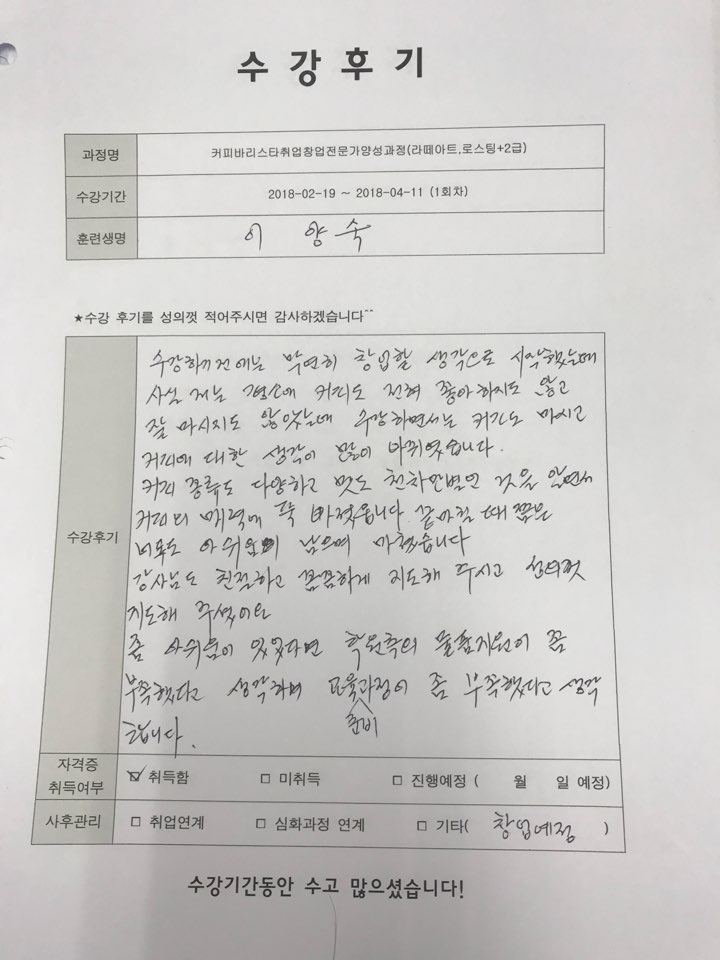 수강후기
과정명 커피바리스타취업창업전문가양성과정(라떼아트,로스팅+2급)
수강기간 2018-02-19 ~ 2018-04-11 (1회차)
훈련생명 이 양숙
★수강 후기를 성의껏 적어주시면 감사하겠습니다^^
수강하기전에는 막연히 창업할 생각으로 시작했는데
사실 저는 평소에 커피도 전혀 좋아하지도 않고
잘 마시지도 않았는데 수강하면서는 커피도 마시고
커피에 대한 생각이 많이 바뀌였습니다.
커피 종류도 다양하고 맛도 천차만별인 것을 알면서
커피의 매력에 푹 빠졌습니다. 끝마칠 때쯤은
너무도 아쉬움이 남으며 마쳤습니다
수강후기
강사님도 친절하고 꼼꼼하게 지도해 주시고 성의껏
지도해 주셨어요
좀 아쉬움이 있었다면 학원측의 물품지원이 쫌
부족했다고 생각하며 교육과정이 좀 부족했다고 생각
준비
합니다.
자격증 취득여부 ☑ 취득함 □ 미취득 □ 진행예정 ( 월 일 예정)
사후관리 □ 취업연계 □ 심화과정 연계 □ 기타( 창업예정 )
수강기간동안 수고 많으셨습니다!